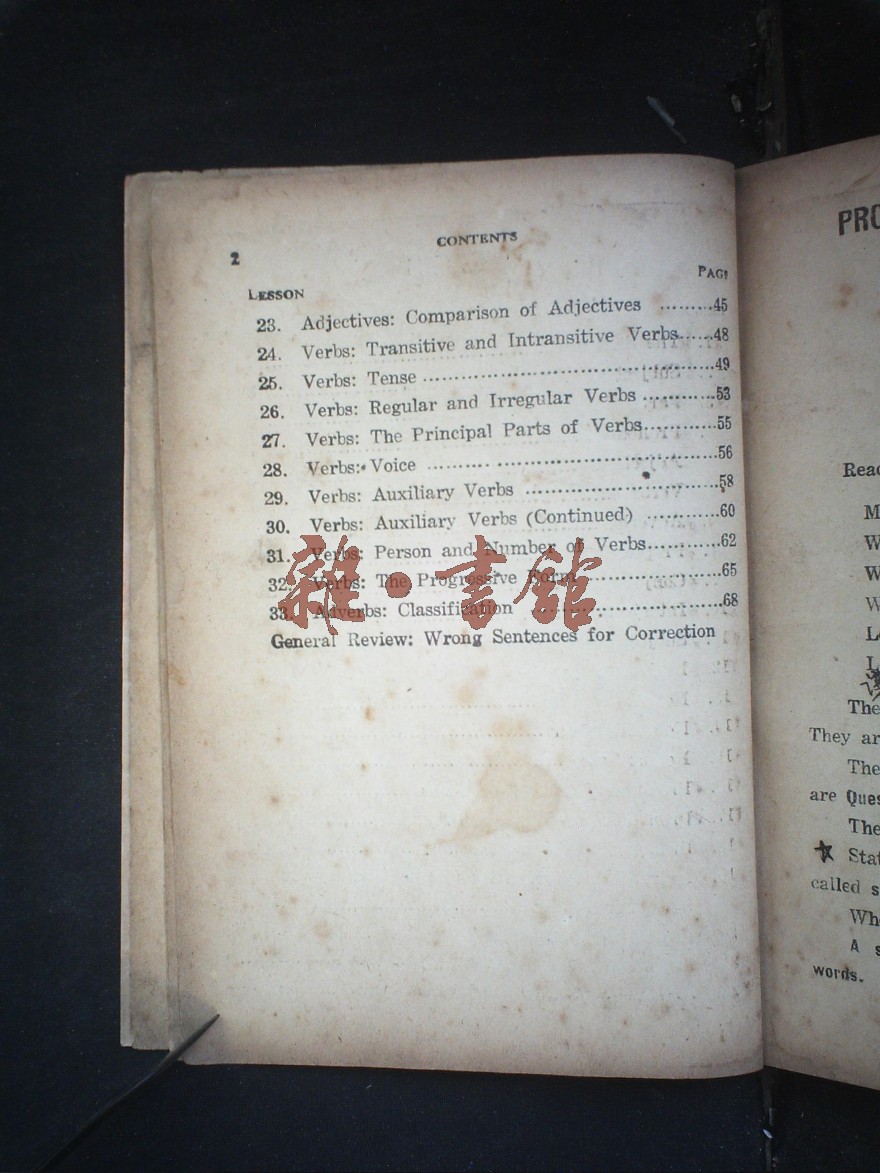 2
CONTENTS
LESSON PAGE
23. Adjectives: Comparison of Adjectives .........45
24. Verbs: Transitive and Intransitive Verbs......48
25. Verbs: Tense ..........................................49
26. Verbs: Regular and Irregular Verbs ............53
27. Verbs: The Principal Parts of Verbs............55
28. Verbs: Voice ..........................................56
29. Verbs: Auxiliary Verbs ..............................58
30. Verbs: Auxiliary Verbs (Continued) ............60
31. Verbs: Person and Number of Verbs............62
32. Verbs: The Progressive Form .....................65
33. Adverbs: Classification ..............................68
General Review: Wrong Sentences for Correction
雜·書館
PRO
Read
M
W
W
W
L
L
The
They ar
The
are Ques
The
Stat
called s
Wh
A s
words.